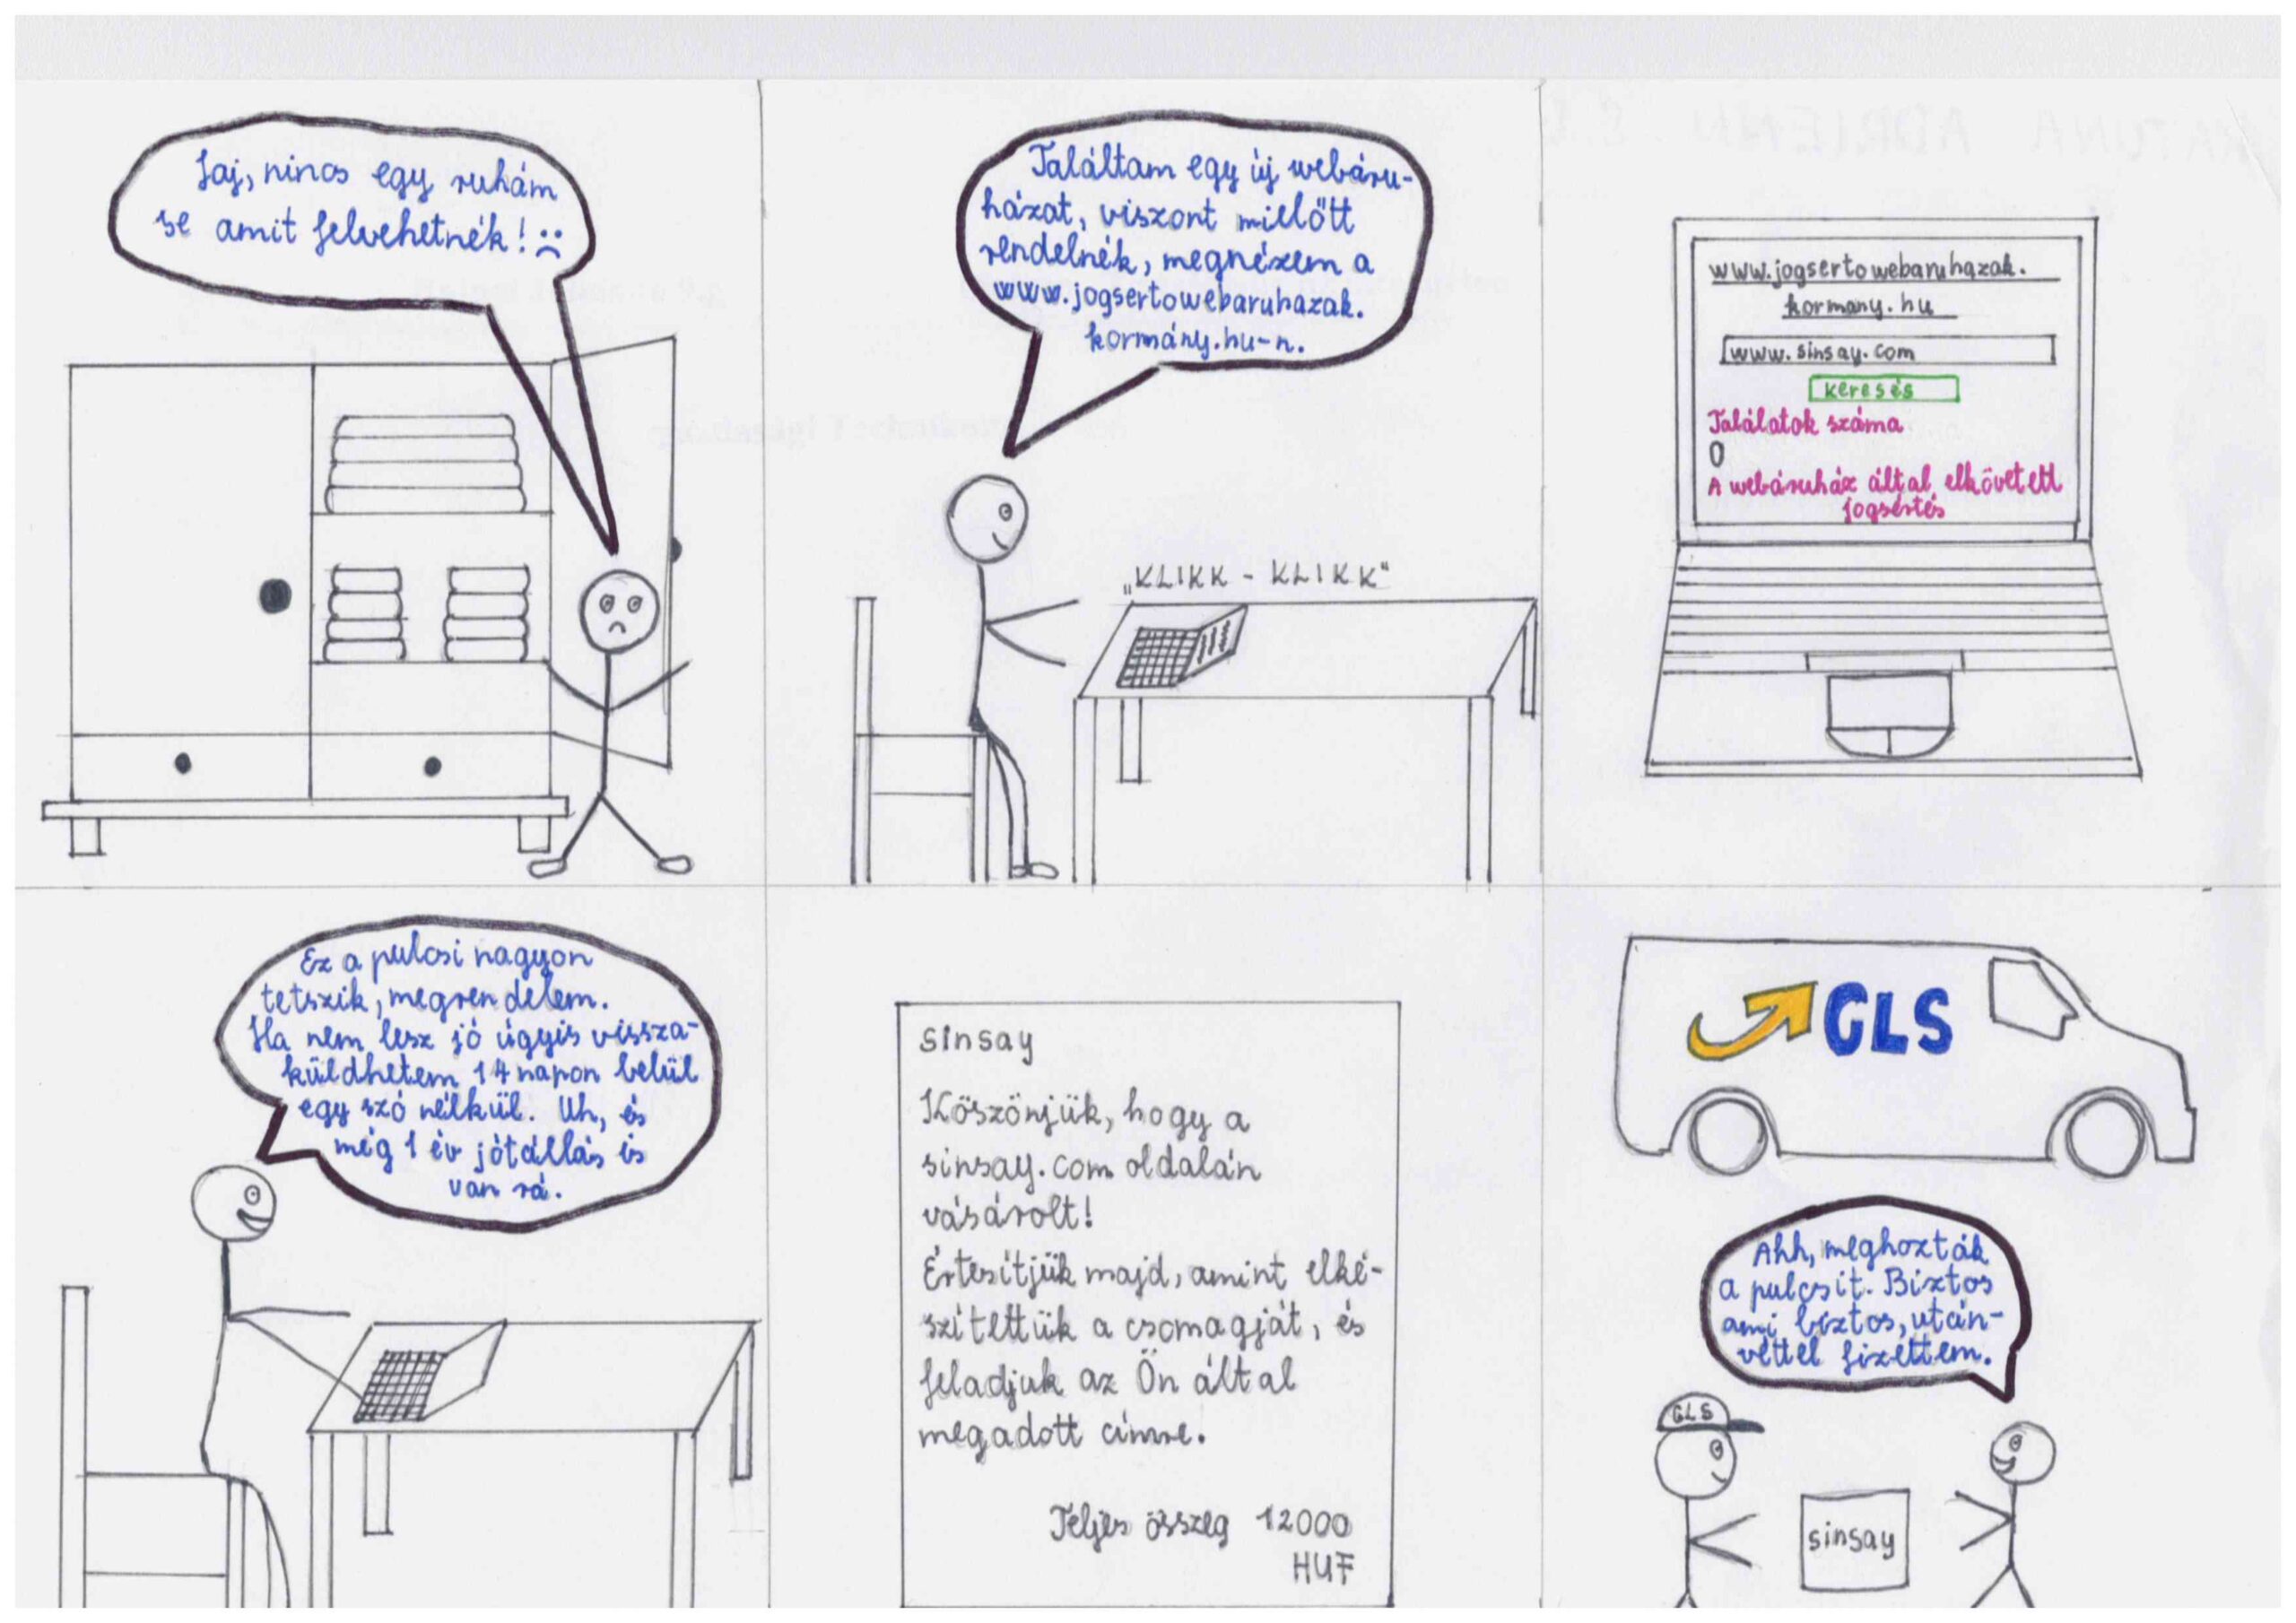 Jaj, nincs egy ruhám
se amit felvehetnék! :(
Találtam egy új webáru-
házat, viszont mielőtt
rendelnék, megnézem a
www.jogsertowebaruhazak.
kormány.hu-n.
„KLIKK - KLIKK"
www.jogsertowebaruhazak.
kormany.hu
www.sinsay.com
keresés
Találatok száma
0
A webáruház által elkövetett
jogsértés
Ez a pulcsi nagyon
tetszik, megrendelem.
Ha nem lesz jó úgyis vissza-
küldhetem 14 napon belül
egy szó nélkül. Uh, és
még 1 év jótállás is
van rá.
sinsay
Köszönjük, hogy a
sinsay.com oldalán
vásárolt!
Értesítjük majd, amint elké-
szítettük a csomagját, és
feladjuk az Ön által
megadott címre.
Teljes összeg 12000
HUF
GLS
Ahh, meghozták
a pulcsit. Biztos
ami biztos, után-
véttel fizettem.
GLS
sinsay